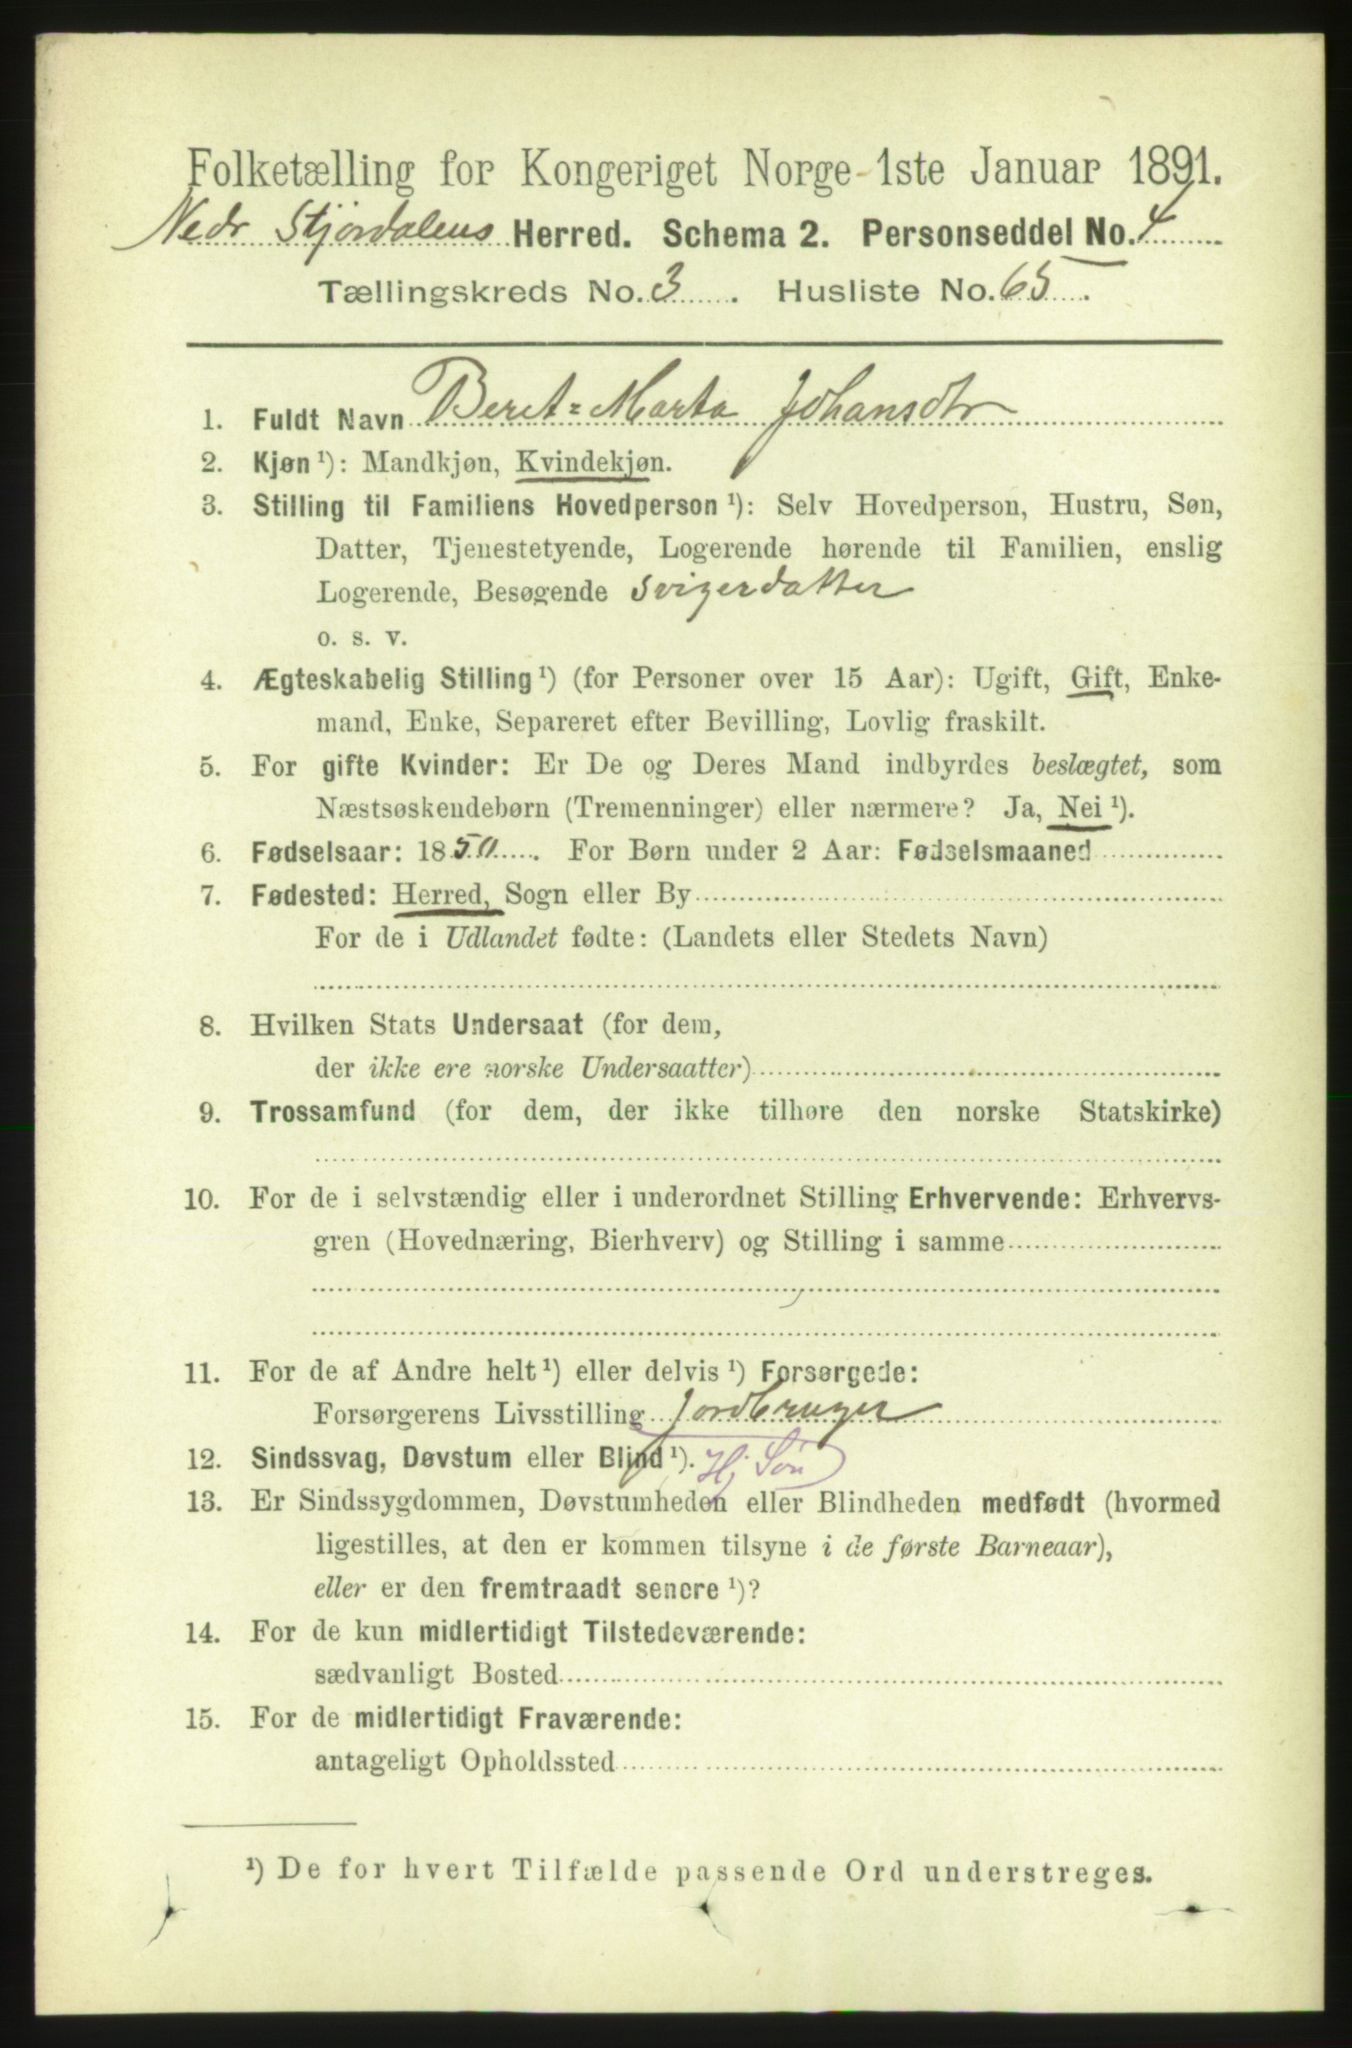 Folketælling for Kongeriget Norge 1ste Januar 1891.
Nedr Stjørdalens Herred. Schema 2. Personseddel No. 4
Tællingskreds No. 3. Husliste No. 65.
1. Fuldt Navn Beret-Marta Johansdtr
2. Kjøn ¹): Mandkjøn, Kvindekjøn.
3. Stilling til Familiens Hovedperson ¹): Selv Hovedperson, Hustru, Søn,
Datter, Tjenestetyende, Logerende hørende til Familien, enslig
Logerende, Besøgende Svigerdatter
o. s. v.
4. Ægteskabelig Stilling ¹) (for Personer over 15 Aar): Ugift, Gift, Enke-
mand, Enke, Separeret efter Bevilling, Lovlig fraskilt.
5. For gifte Kvinder: Er De og Deres Mand indbyrdes beslægtet, som
Næstsøskendebørn (Tremenninger) eller nærmere? Ja, Nei ¹).
6. Fødselsaar: 1850. For Børn under 2 Aar: Fødselsmaaned
7. Fødested: Herred, Sogn eller By
For de i Udlandet fødte: (Landets eller Stedets Navn)
8. Hvilken Stats Undersaat (for dem,
der ikke ere norske Undersaatter)
9. Trossamfund (for dem, der ikke tilhøre den norske Statskirke)
10. For de i selvstændig eller i underordnet Stilling Erhvervende: Erhvervs-
gren (Hovednæring, Bierhverv) og Stilling i samme
11. For de af Andre helt ¹) eller delvis ¹) Forsørgede:
Forsørgerens Livsstilling Jordbruger
12. Sindssvag, Døvstum eller Blind ¹). Hj Søn
13. Er Sindssygdommen, Døvstumheden eller Blindheden medfødt (hvormed
ligestilles, at den er kommen tilsyne i de første Barneaar),
eller er den fremtraadt senere ¹)?
14. For de kun midlertidigt Tilstedeværende:
sædvanligt Bosted
15. For de midlertidigt Fraværende:
antageligt Opholdssted
¹) De for hvert Tilfælde passende Ord understreges.